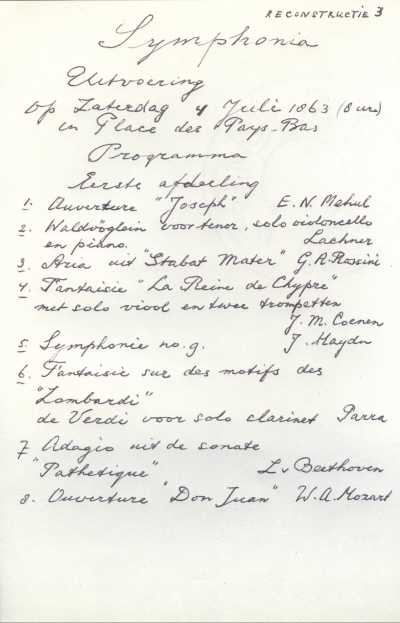 RECONSTRUCTIE 3
Symphonia
Uitvoering
op Zaterdag 4 Juli 1863 (8 ure)
in Place des Pays-Bas
Programma
Eerste afdeeling
1. Ouverture "Joseph" E. N. Mehul
2. Waldvöglein voor tenor, solo violoncello
en piano. Lachner
3. Aria uit "Stabat Mater" G. A. Rossini
4. Fantaisie "La Reine de Chypre"
met solo viool en twee trompetten
J. M. Coenen
5. Symphonie no. 9. J. Haydn
6. Fantaisie sur des motifs des
"Lombardi"
de Verdi voor solo clarinet Parra
7. Adagio uit de sonate
"Pathetique" L. v Beethoven
8. Ouverture "Don Juan" W. A. Mozart